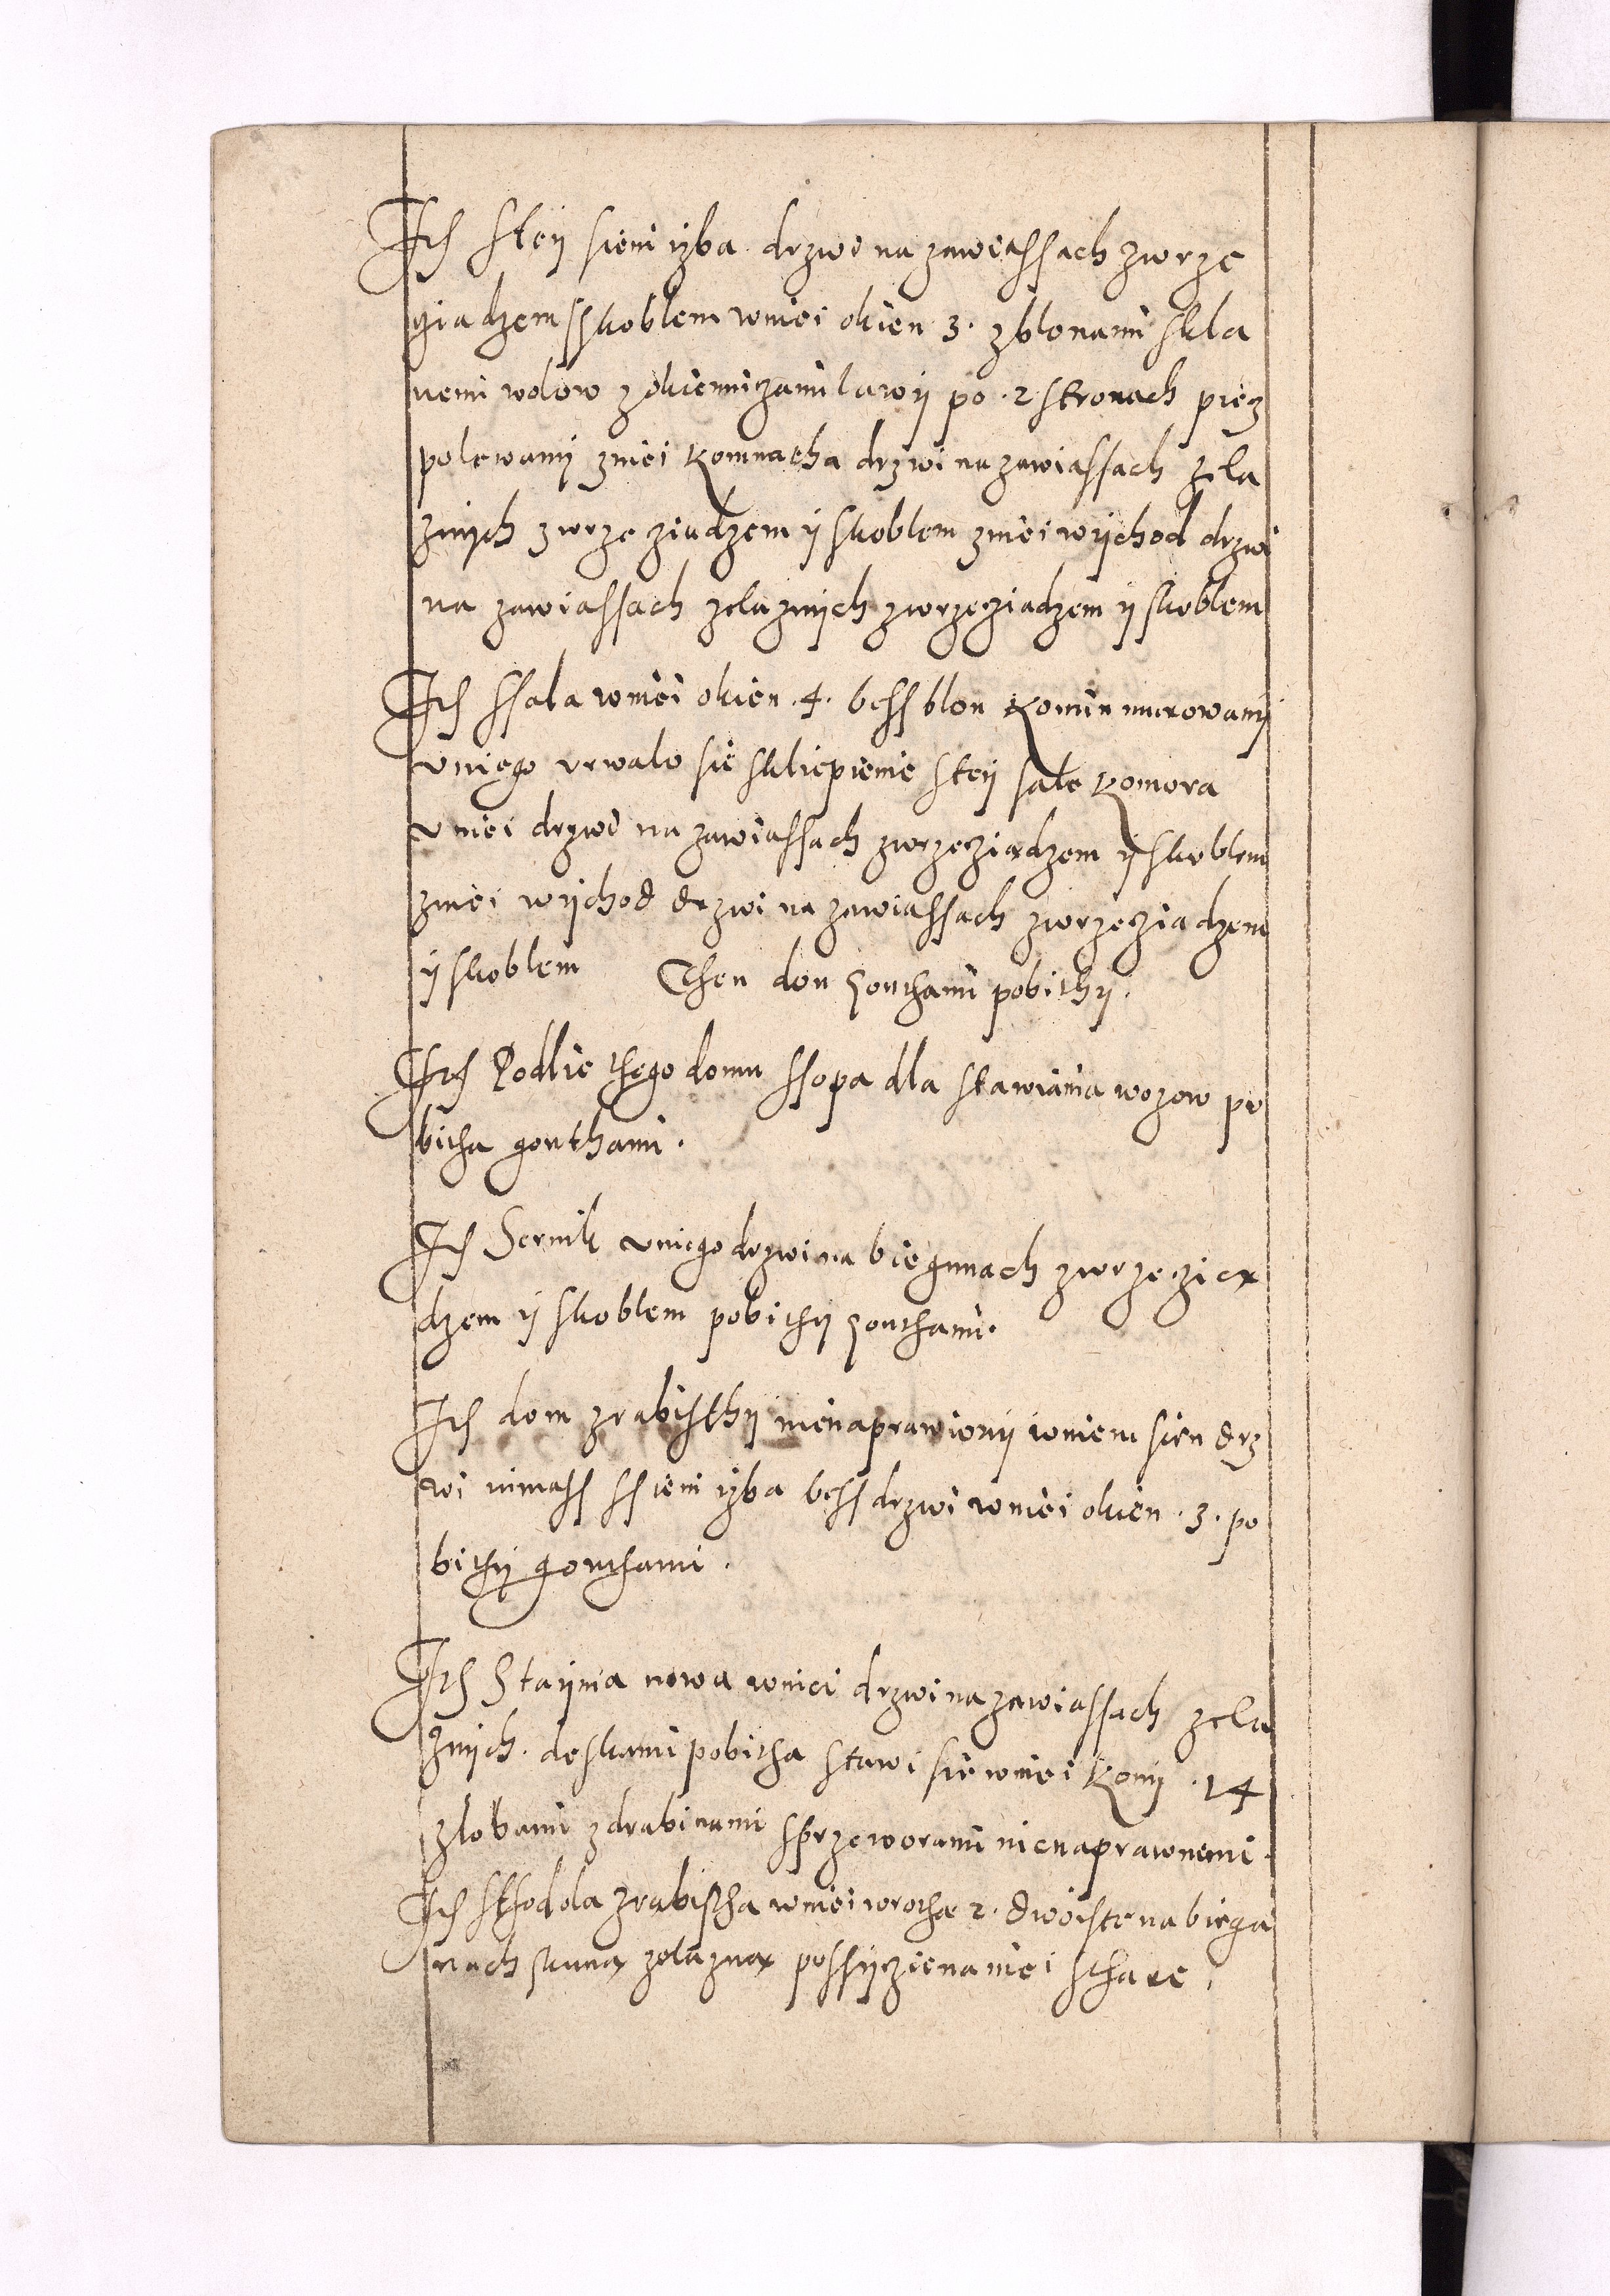 Ith stey sieni yzba drzwi na zawiassach zwrze
giadzem sskoblem wniei okien 3. z blonami skla
nemi wolow z okienniczami lawy po .2 stronach piecz
polewany zniei komnatha drzwi na zawiassach zela
znych zwrzecziadzem y skoblem zniei wychod drzwi
na zawiassach zelaznych zwrzecziadzem y skoblem
Ith ssala wniei okien .4. bess blon komin murowany
v niego vrwalo sie skliepienie stey sale komora
v niei drzwi na zawiassach zwrzecziadzem y skoblem
zniei wychod drzwi na zawiassach zwrzecziadzem
y skoblem Then dom gonthami pobithy.
Ith Podlie thego domu ssopa dla stawiania wozow po
bitha gonthami.
Ith Sernik v niego drzwi na biegunach zwrzeczia
dzem y skoblem pobithy gonthami.
Ith dom zrabisthy nienaprawiony wniem sien drz
wi nimass ssieni yzba bess drzwi wniei okien .3. po
bithy gonthami.
Ith Staynia nowa wniei drzwi na zawiassach zela
znych. deskami pobitha stawi sie wniei kony .14
zlobami zdrabinami sprzeworami nienaprawnemi.
Ith sthodola zrabistha wniei wrotha 2. dwoiste na biega
nach sunax zelaznax possyczie na niei sthare,